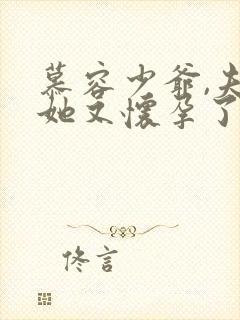 慕容少爷,夫
她又怀孕了
佟言